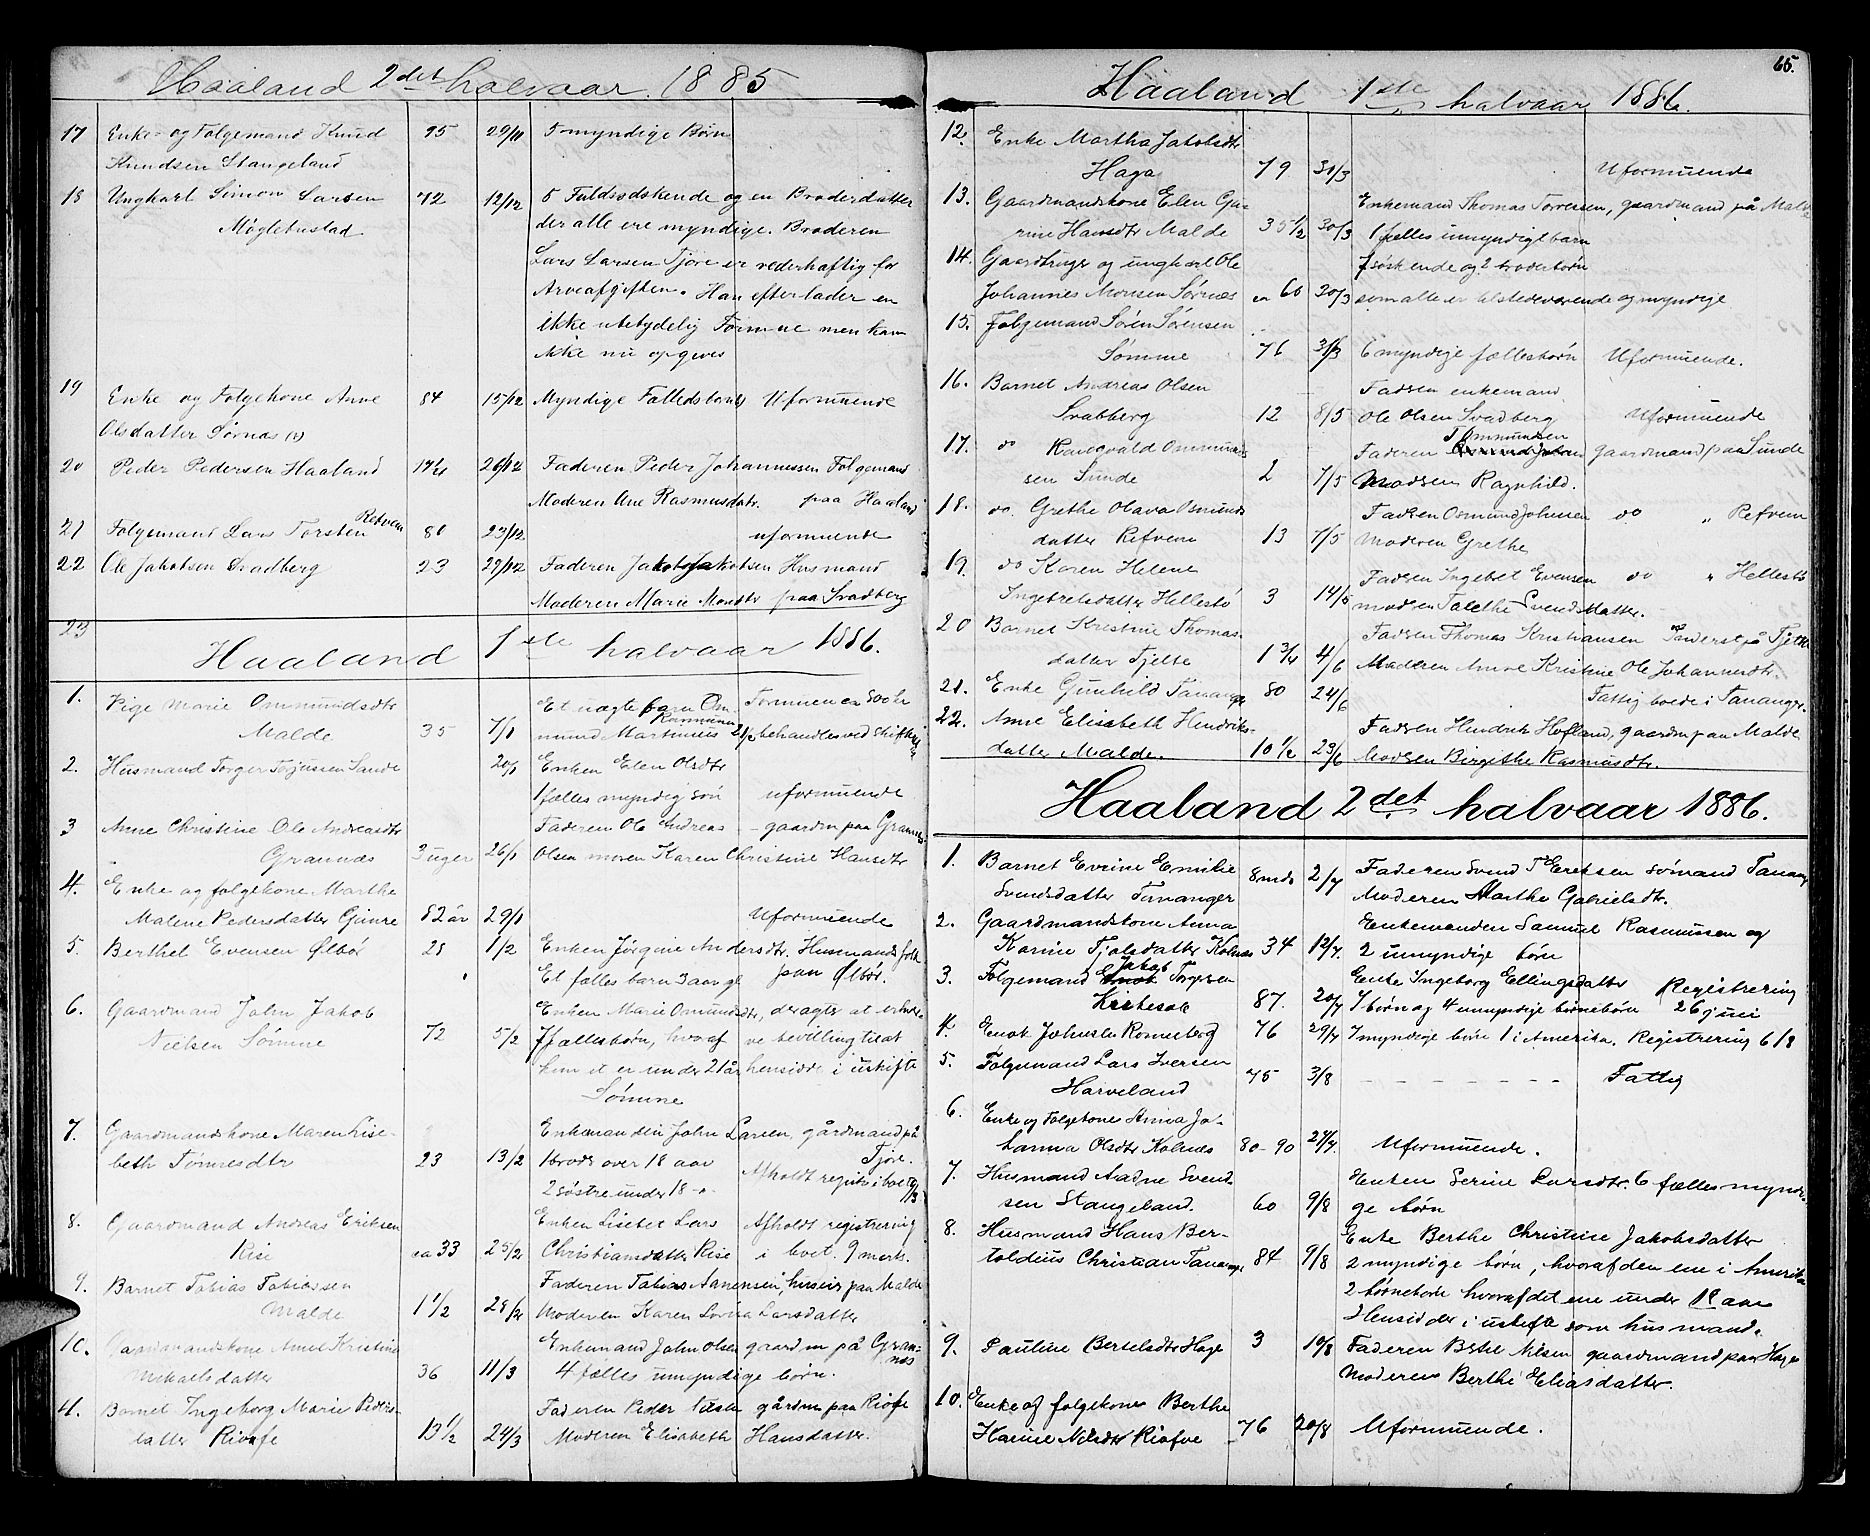 Haaland 2det halvaar. 1885
17 Enke- og Folgemand Knud 95 29/11 5 myndige Børn
Knudsen Stangeland
18 Ungkarl Simon Larsen 72 12/12 5 Fuldsødskende og en Broderdatter
Møglebustad der alle ere myndige. Broderen
Lars Larsen Tjore er vederhæftig for
Arveafgiften. Han efterlader en
ikke ubetydelig Formue men kan
ikke nu opgives
19 Enke og Folgekone Anne 84 15/12 Myndige Fælledsbørn Uformuende
Olsdatter Sørnæs
20 Peder Pedersen Haaland 26/12 Faderen Peder Johannessen Folgemand
Moderen Ane Rasmusdatr. paa Haaland
21 Folgemand Lars Torsten Refvem 80 23/12 uformuende
22 Ole Jakobsen Svadberg 23 29/12 Faderen Jakob Jakobsen Husmand
Moderen Marie Monsdtr paa Svadberg
23
Haaland 1ste halvaar 1886.
1. Pige Marie Ommundsdtr Et uægte barn Om- Formuen ca 800 kr
Malde 35 7/1 mund Martinius Rasmussen 2 1/2 behandles ved skifte
2. Husmand Torger Terjussen Sande 20/1 Enken Elen Olsdtr
1 fælles myndig søn uformuende
3 Anne Christine Ole Andreasdtr Faderen Ole Andreas - gaardm paa Grannes
Grannæs 3 uger 26/1 Olsen moren Karen Christine Hansdtr
4. Enke og folgekone Marthe
Malene Pedersdatter Gimre 82 år 29/1 Uformuende
5. Berthel Evensen Ølbør 28 1/2 Enken Jørgine Andersdtr. Husmandsfolk
Et fælles barn 3 aar gl paa Ølbør.
6. Gaardmand John Jakob Enken Marie Omundsdtr, deragter at erhver-
Nielsen Sømme 72 5/2 7 fællesbørn, hvoraf ve bevilling til at
kun et er under 21 år hensidde i uskifte
Sømme
7. Gaardmandskone Maren Lise- Enkemanden John Larsen, gårdmand på
beth Tønnesdtr 23 13/2 1 broder over 18 aar Afholdt registr i boet Tjore.
2 søstre under 18 -"- 9/3
8. Gaardmand Andreas Eriksen Enken Lisebet Lars Afholdt registrering
Rise ca 33 25/2 Christiansdatter Rise i boet. 9 marts.
9. Barnet Tobias Tobiassen Faderen Tobias Aanensen, husm paa Malde
Malde 1 1/2 28/2 Moderen Karen Sovina Larsdatter
10. Gaardmandskone Anne Kristine Enkemand John Olsen gaardm på Gran-
Mikaelsdatter 36 11/3 4 fælles umyndige børn. næs
11. Barnet Ingeborg Marie Peders- Faderen Peder gårdm paa Riofe
datter Riofe 13 1/2 24/3 Moderen Elisabeth Hansdatter.
65.
Haaland 1ste halvaar 1886.
12. Enke Martha Jakobsdtr
Haga 79 30/3 Uformuende
13. Gaardmandskone Elen Ga- Enkemand Thomas Torresen, gaardmand på Malde
rine Hansdtr Malde 35 1/2 30/3 1 fælles umyndigt barn
14. Gaardbruger og ungkarl Ole 7 søskende og 2 broderbørn
Johannes Monsen Sørnæs ca 60 20/3 som alle er tilstedeværende og myndige
15. Folgemand Søren Sørensen
Sømme 76 31/3 6 myndige fællesbørn Uformuende.
16. Barnet Andreas Olsen Fadren enkemand
Svadberg 12 8/5 Ole Olsen Svadberg Uformuende
17. do Ranegvald Ommunds- Faderen T Ommundsen gaardmand paa Sunde
sen Sunde 2 7/5 Modren Ragnhild.
18. do. Grethe Olava Osmunds Fadren Osmund Johnsen do " Refvem
datter Refvem 13 7/5 Moderen Grethe
19. do Karen Helene Fadren Ingebret Evensen do " Hellestø
Ingebretsdatter Hellestø 3 14/5 modren Talethe Svendsdatter.
20 Barnet Kristine Thomas- Fadren Thomas Kristiansen på Tjelte
datter Tjelte 1 3/4 4/6 Moderen Anne Kristine Ole Johannesdtr.
21. Enke Gunhild Tananger 80 24/6 Fattig boede i Tananger.
22. Anne Elisabeth Hendriks- Fadren Hendrik Hofland, gaardm paa Malde
datter Malde. 10 1/2 23/6 Modren Birgithe Rasmusdtr.
Haaland 2det halvaar 1886.
1. Barnet Evrine Emilie 8 mdr 2/7 Faderen Svend T Eriksen sømand Tanang
Svendsdatter Tananger Moderen Marthe Gabrielsdtr.
2. Gaardmandskone Anna Enkemanden Samuel Rasmussen og
Karine Tjølsdatter Kolnæs 34 12/7 2 umyndige børn
3. Folgemand Jakob Torgersen Enke Ingeborg Ellingsdatter Registrering
Kirkesole 87. 20/7 7 børn og 4 umyndige børnebørn 26 juli
4. Enok Johnsen Romeberg 76 29/7 7 myndige børn 1 i Amerika. Registrering 6/8
5. Folgemand Lars Iversen
Harveland 75 3/8 - - - - - - - Fattig
6. Enke og Folgekone Anna Jo-
hanna Olsdtr Kolnæs 80-90 24/7. Uformuende.
7. Husmand Aadne Svend- Enken Serine Larsdtr. 6 fælles myndi-
sen Stangeland. 60 9/8 ge børn
8. Husmand Hans Ber- Enke Berthe Christine Jakobsdatter
toldius Christian Tananger 84 9/8 2 myndige børn, hvoraf den ene i Amerika
2 børnebørn hvoraf det ene under 18 aar
Hensidder i uskifte som husmand.
9. Pauline Bertelsdtr Haga 3 10/8 Faderen Bertel Nilsen gaardmand paa Haga
Moderen Berthe Eliasdatter.
10. Enke af folgekone Berthe
Karine Nilsdtr Riofve 76 20/8 Uformuende.